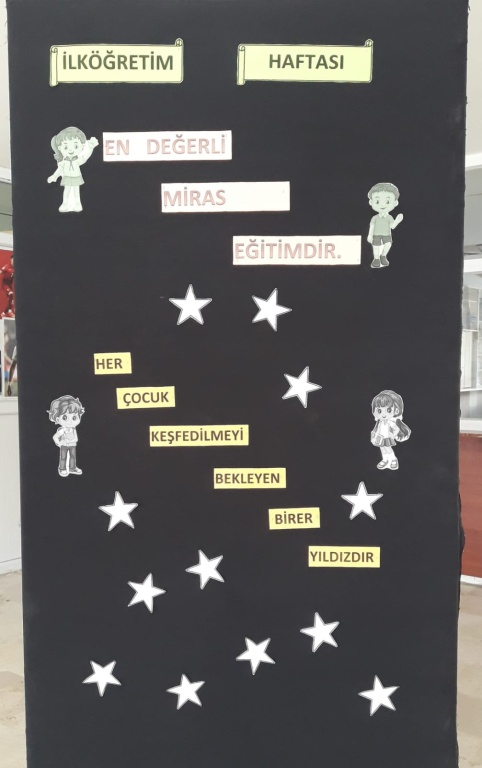 İLKÖĞRETİM HAFTASI
EN DEĞERLİ
MİRAS
EĞİTİMDİR.
HER
ÇOCUK
KEŞFEDİLMEYİ
BEKLEYEN
BİRER
YILDIZDIR